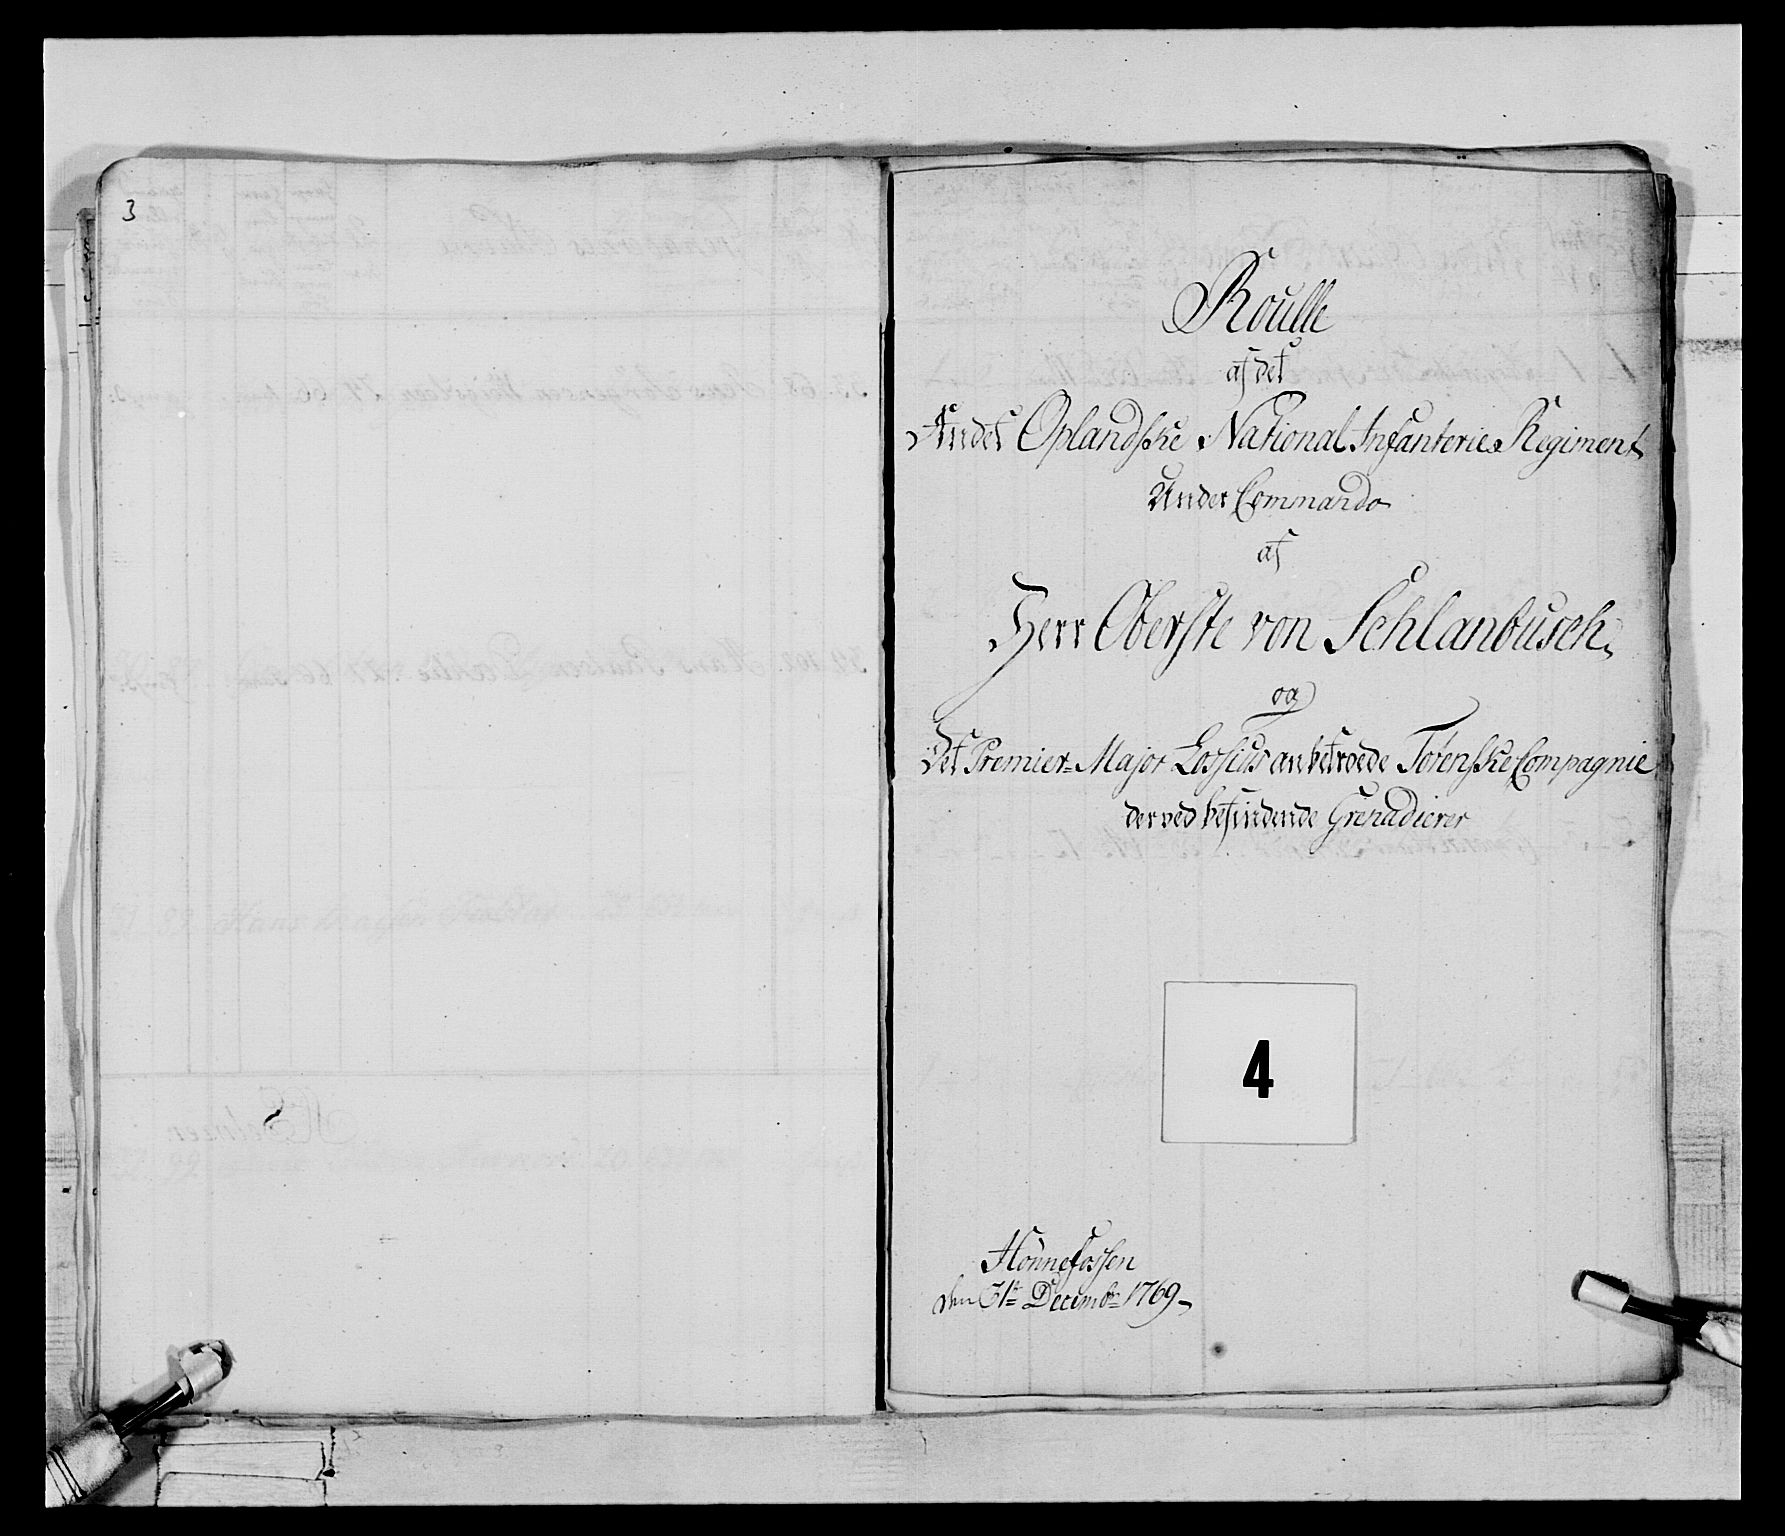 3
Roulle
af det
Andet Oplandske National Infanterie Regiment
Under Commando
af
Herr Oberste von Schlanbusch
og
Det Premier-Major Lossius anbetroede Totenske Compagnie
derved befindende Grenadierer
4
Hönnefossen
den 31te Decembr 1769